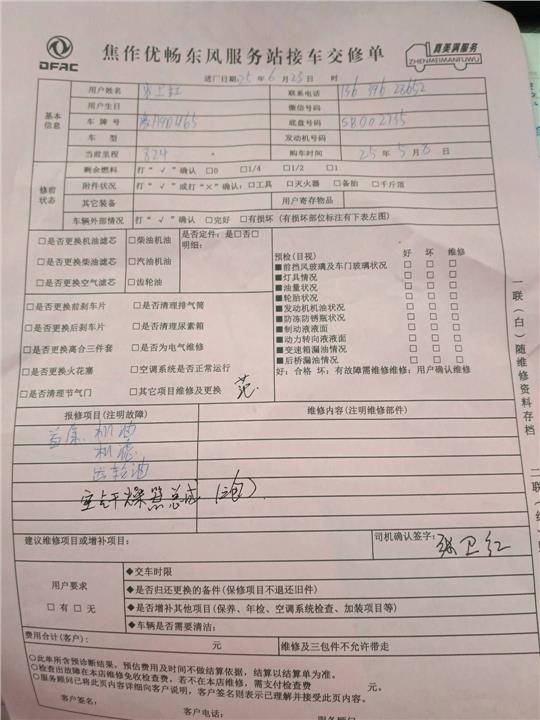 DFAC
焦作优畅东风服务站接车交修单
真美满服务
ZHENMEIMANFUWU
进厂日期25年6月23日 时
基本信息
用户姓名 联系电话
用户生日 微信号码
车牌号 底盘号码 SB002735
车型 发动机号码
当前里程 824 购车时间 25年5月8日
修前状态
剩余燃料 打“√”确认 □0 □1/4 □1/2 □1
附件状况 打“√”或打“×”确认:□工具 □灭火器 □备胎 □千斤顶
其它装备 用户寄存物品
车辆外部情况 打“√”确认 □完好 □有损坏 (有损坏部位标注有下表左图)
□是否更换机油滤芯 □柴油机油 是否定件: 是□否□
明细:
□是否更换柴油滤芯 □汽油机油
□是否更换空气滤芯 □齿轮油
预检(目视) 好 坏 维修
■前挡风玻璃及车门玻璃状况 □ □ □
■灯具情况 □ □ □
■油量状况 □ □ □
■轮胎状况 □ □ □
■发动机机油状况 □ □ □
■防冻防锈瓶状况 □ □ □
■制动液液面 □ □ □
■动力转向液液面 □ □ □
■变速箱漏油情况 □ □ □
■后桥漏油情况 □ □ □
好:合格 坏:有故障需维修维修:用户确认维修
□是否更换前刹车片 □是否清理排气筒
□是否更换后刹车片 □是否清理尿素箱
□是否更换离合三件套 □是否为电气维修
□是否更换火花塞 □空调系统是否正常运行
□是否清理节气门 □其它项目维修及更换
报修项目(注明故障) 维修内容(注明维修部件)
机油
机滤
齿轮油
干燥器总成
建议维修项目或增补项目:
司机确认签字: 张卫红
用户要求
□有 □无
◆交车时限
◆是否归还更换的备件(保修项目不退还旧件)
◆是否增补其他项目(保养、年检、空调系统检查、加装项目等)
◆车辆是否需要清洁:
费用合计(客户): 元 维修及三包件不允许带走
○此单所含预诊断结果,预估费用及时间不做结算依据,结算以结算单为准。
○检查出故障在本店维修免收检查费,若不在本店维修,需支付检查费 元。
○服务顾问已将此页内容详细向客户说明,客户签名则表示已理解并接受此页内容。
客户签名: 客户电话: 服务顾问
一联(白)随维修资料存档